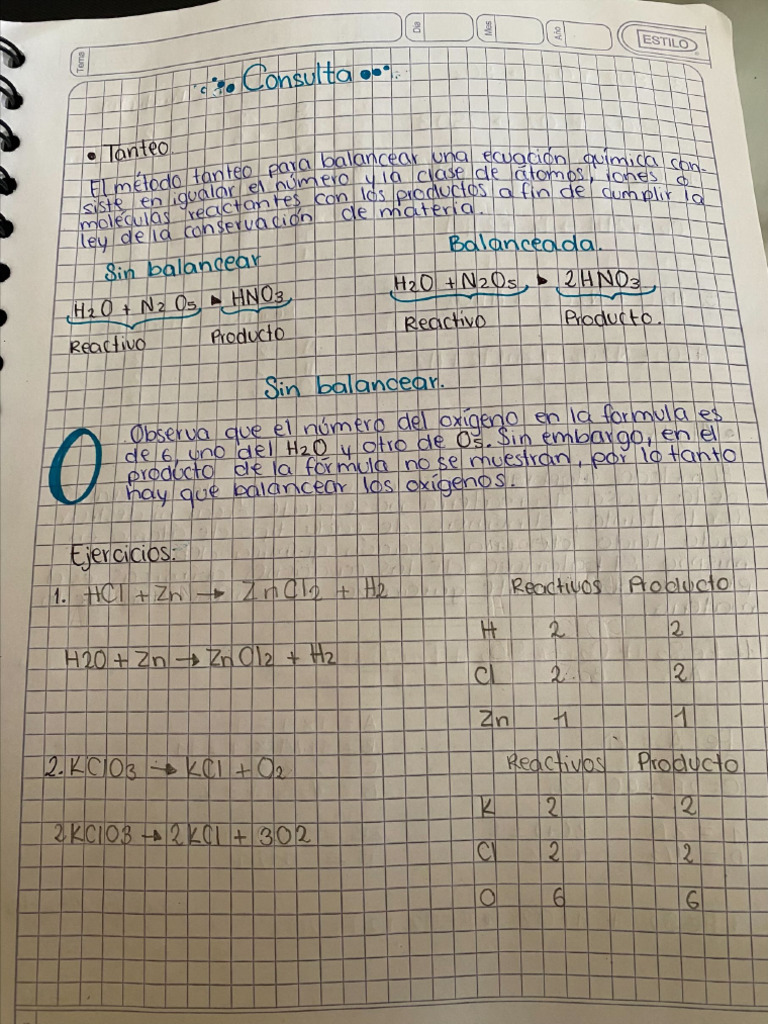 Tema
Dia
Mes
Año
ESTILO
Consulta
• Tanteo
El método tanteo para balancear una ecuación química con-
siste en igualar el número y la clase de átomos, iones o
moléculas reactantes con los productos a fin de cumplir la
ley de la conservación de materia.
Sin balancear
Balanceada.
H2O + N2O5 ▸ HNO3
H2O + N2O5 ▸ 2HNO3
Reactivo Producto
Reactivo Producto.
Sin balancear.
O
Observa que el número del oxígeno en la formula es
de 6, uno del H2O y otro de O5. Sin embargo, en el
producto de la fórmula no se muestran, por lo tanto
hay que balancear los oxígenos.
Ejercicios:
1. HCl + Zn → ZnCl2 + H2
Reactivos Producto
H 2 2
H2O + Zn → ZnCl2 + H2
Cl 2 2
Zn 1 1
2. KClO3 → KCl + O2
Reactivos Producto
K 2 2
2KClO3 → 2KCl + 3O2
Cl 2 2
O 6 6